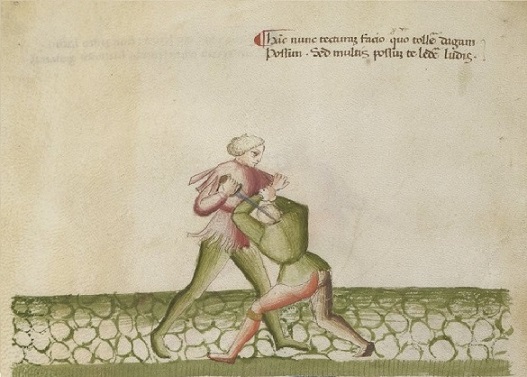 Hāc nunc tecturaʒ facio quo tollē dagam
Possim . Sed multis possuʒ te ledē ludis .